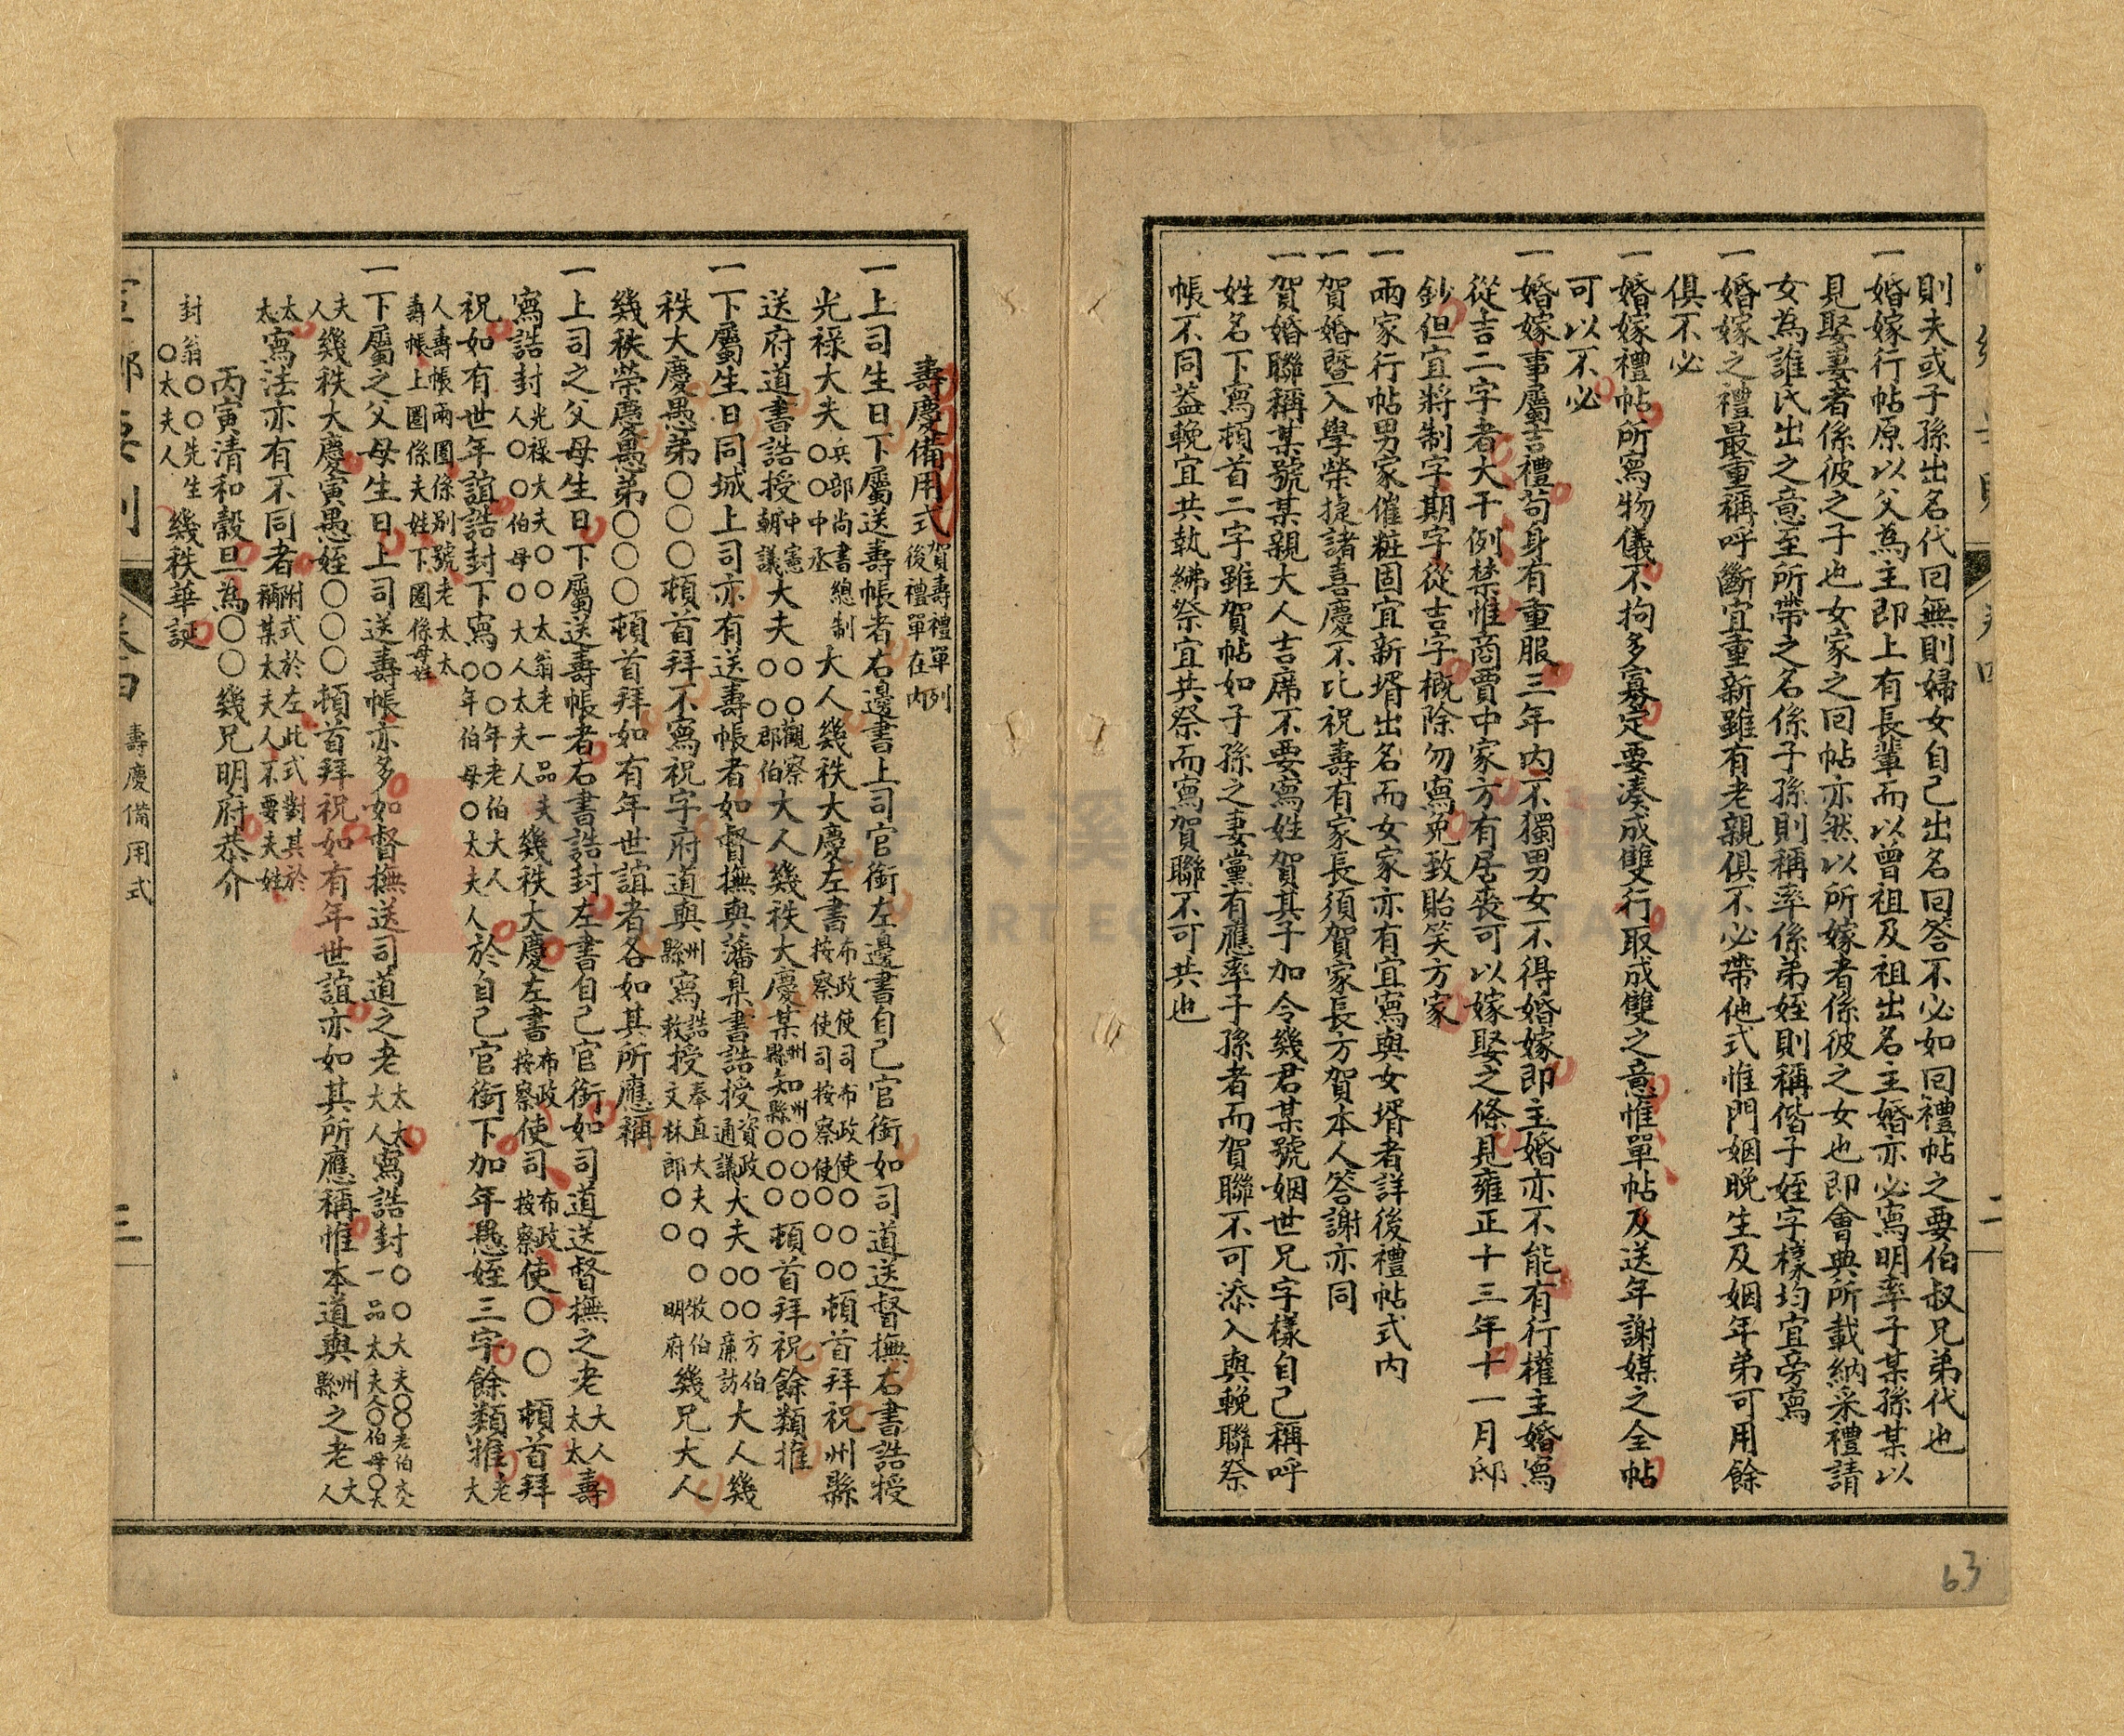 則夫或子孫出名代回無則婦女自己出名回答不必如回禮帖之要伯叔兄弟代也
一婚嫁行帖原以父為主即上有長輩而以曾祖及祖出名主婚亦必寫明率子某孫某以
見娶妻者係彼之子也女家之回帖亦然以所嫁者係彼之女也即會典所載納采禮請
女為誰氏出之意至所帶之名係子孫則稱率係弟姪則稱偕子姪字樣均宜旁寫
一婚嫁之禮最重稱呼斷宜重新雖有老親俱不必帶他式惟門姻晚生及姻年弟可用餘
俱不必
一婚嫁禮帖所寫物儀不拘多寡定要湊成雙行取成雙之意惟單帖及送年謝媒之全帖
可以不必
一婚嫁事屬吉禮苟身有重服三年內不獨男女不得婚嫁即主婚亦不能有行權主婚寫
從吉二字者大干例禁惟商賈中家方有居喪可以嫁娶之條見雍正十三年十一月邸
鈔但宜將制字期字從吉字概除勿寫免致貽笑方家
一兩家行帖男家催粧固宜新壻出名而女家亦有宜寫與女壻者詳後禮帖式內
一賀婚暨入學榮捷諸喜慶不比祝壽有家長須賀家長方賀本人答謝亦同
一賀婚聯稱某號某親大人吉席不要寫姓賀其子加令幾君某號姻世兄字樣自己稱呼
姓名下寫頓首二字雖賀帖如子孫之妻黨有應率子孫者而賀聯不可添入與輓聯祭
帳不同蓋輓宜共執紼祭宜共祭而寫賀聯不可共也
二
63
壽慶備用式 賀壽禮單列後禮單在內
一上司生日下屬送壽帳者右邊書上司官銜左邊書自己官銜如司道送督撫右書誥授
光祿大夫兵部尚書總制○○中丞大人幾秩大慶左書布政使司布政使○○按察使司按察使○○頓首拜祝州縣
送府道書誥授中憲朝議大夫○○觀察○○郡伯大人幾秩大慶某州縣知州縣○○○○○○頓首拜祝餘類推
一下屬生日同城上司亦有送壽帳者如督撫與藩臬書誥授資政通議大夫○○方伯○○廉訪大人幾
秩大慶愚弟○○○頓首拜不寫祝字府道與州縣寫誥敕授奉直大夫○○牧伯文林郎○○明府幾兄大人
幾秩榮慶愚弟○○○頓首拜如有年世誼者各如其所應稱
一上司之父母生日下屬送壽帳者右書誥封左書自己官銜如司道送督撫之老大人太太壽
寫誥封光祿大夫○○太翁老大人○○伯母○大人太夫人一品夫人幾秩大慶左書布政按察使司布政按察使○○頓首拜
祝如有世年誼誥封下寫○○年老伯大人○年伯母○太夫人於自己官銜下加年愚姪三字餘類推老大
人壽帳兩圈係別號老太太壽帳上圈係夫姓下圈係母姓
一下屬之父母生日上司送壽帳亦多如督撫送司道之老太太大人寫誥封○○大夫○○老伯大人一品太夫人○伯母○太
夫人幾秩大慶寅愚姪○○○頓首拜祝如有年世誼亦如其所應稱惟本道與州縣之老大人
太太寫法亦有不同者附式於左此式對其於稱某太夫人不要夫姓
丙寅清和穀旦為○○幾兄明府恭介
封翁○○先生○太夫人幾秩華誕
卷四
壽慶備用式
三